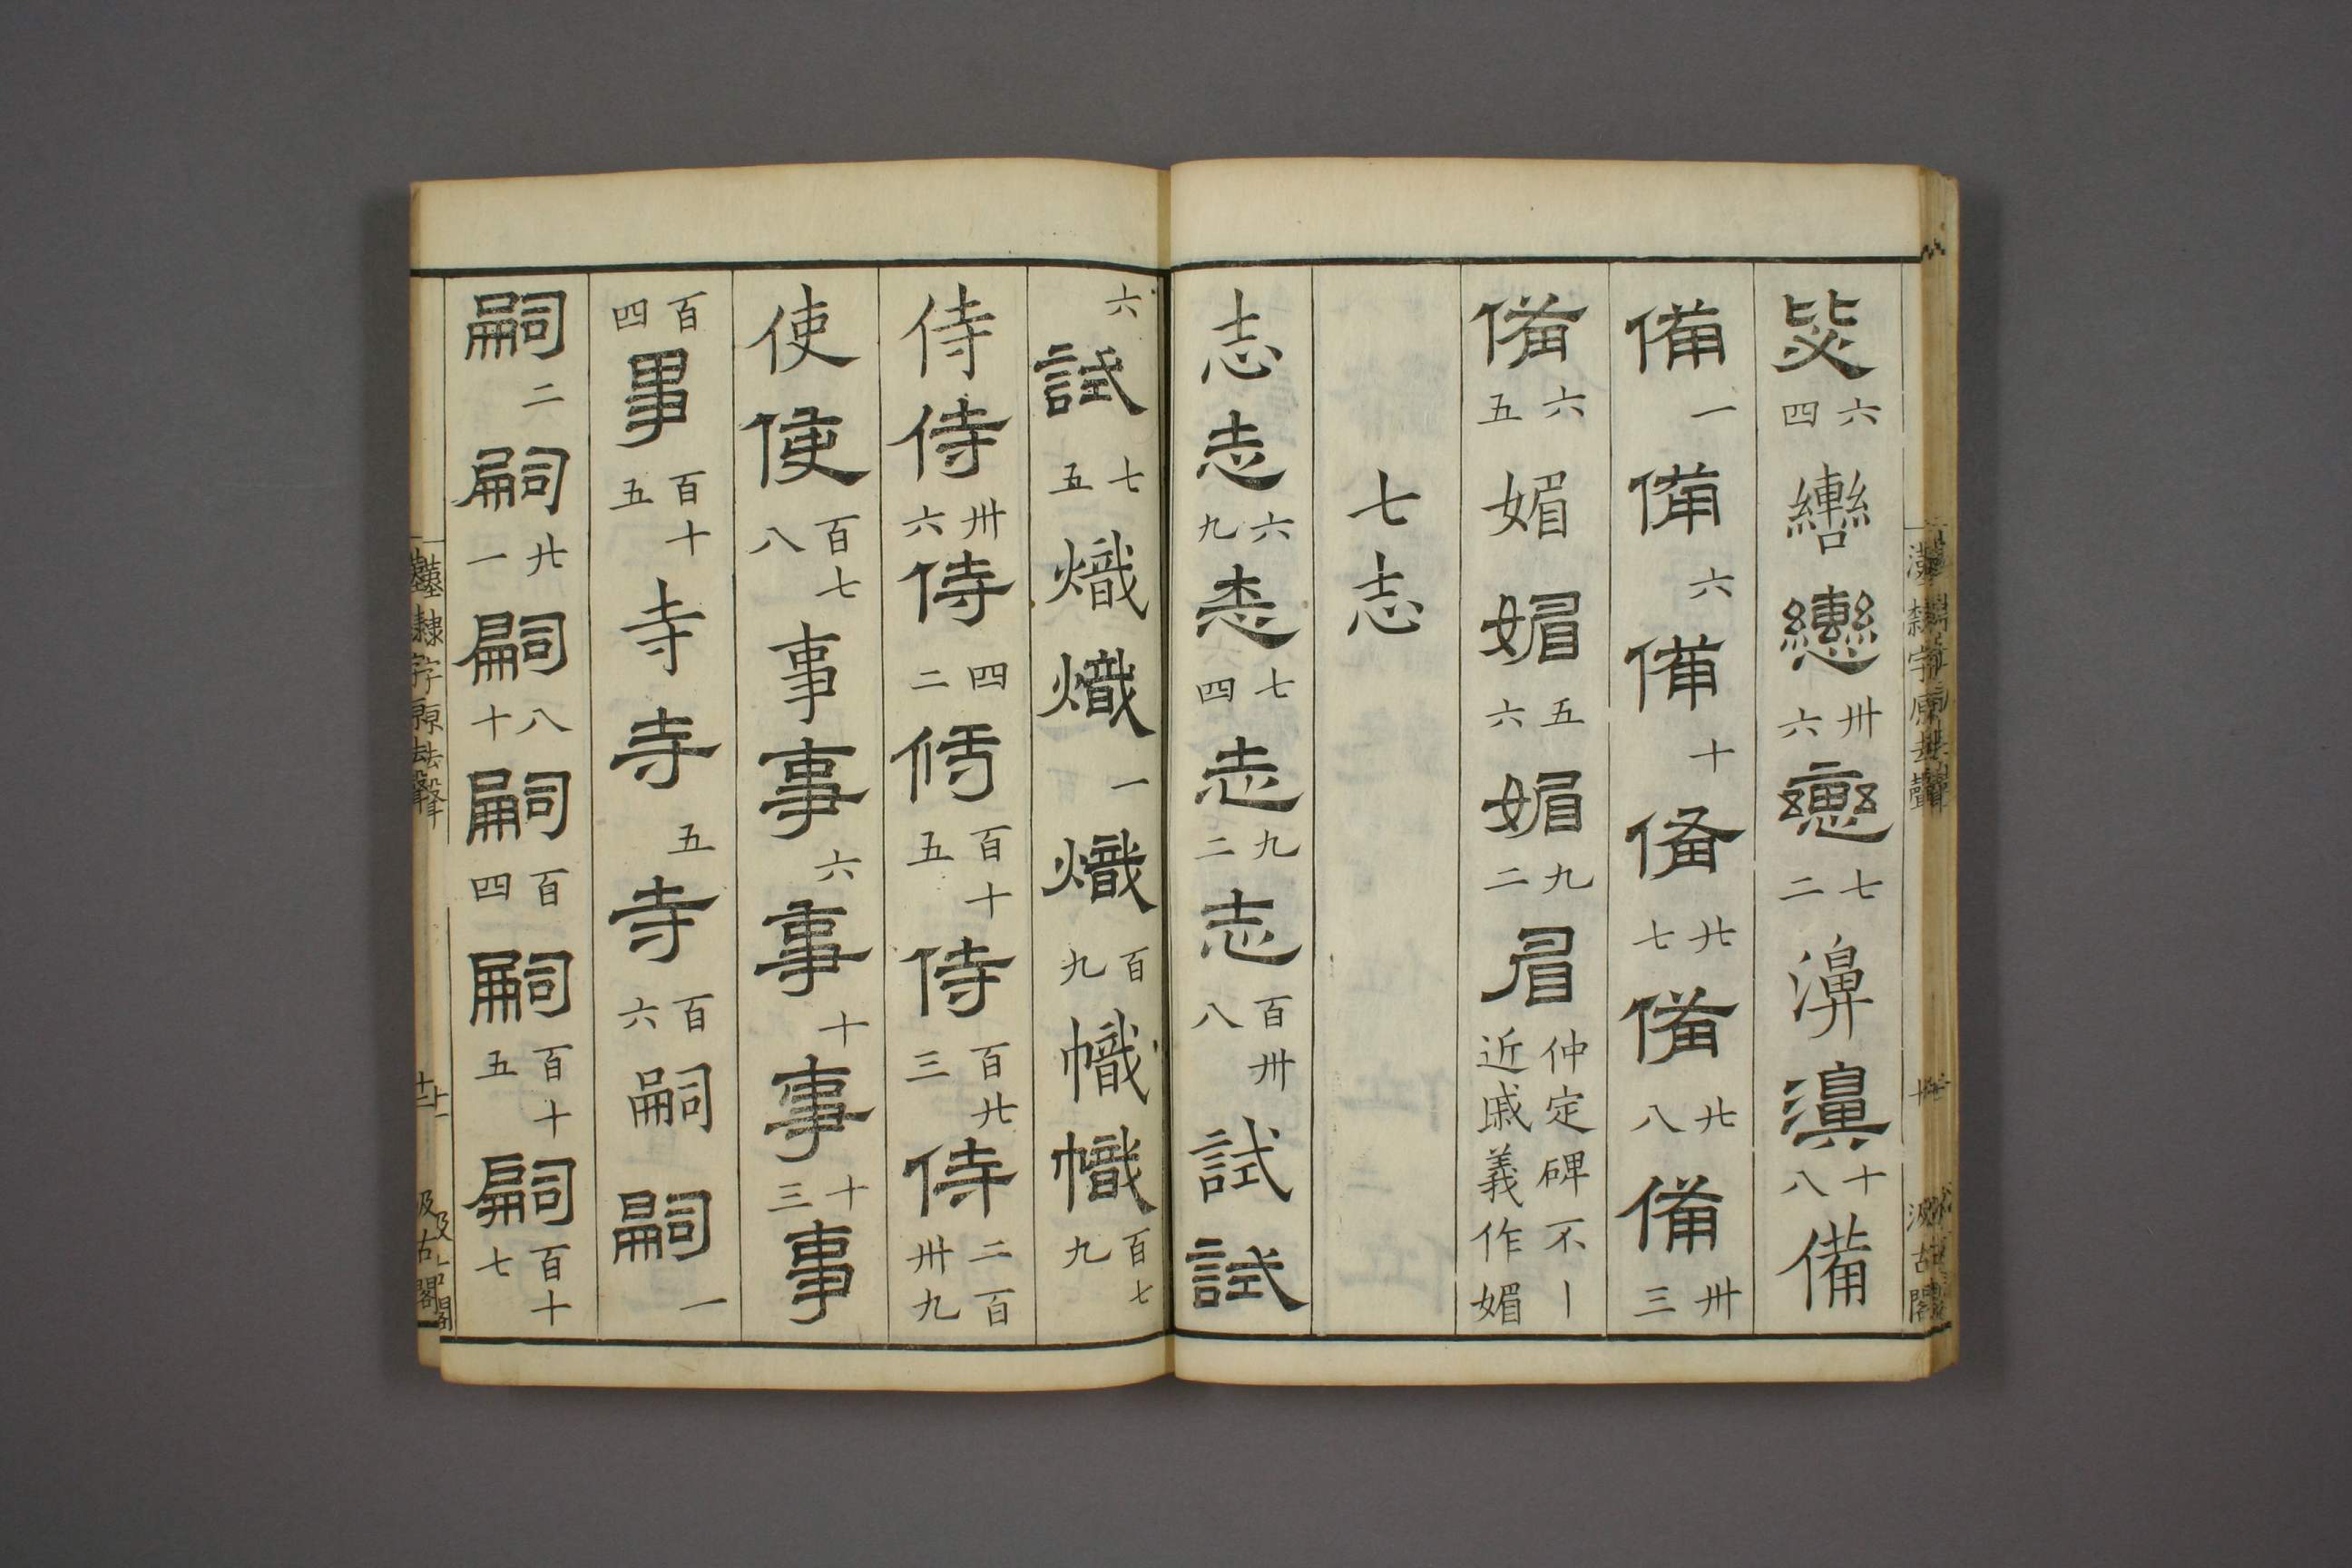 六四轡轡卅六轡七二濞濞十八備
備一備六備十備廿七備廿八備卅三
備六五媚媚五六媚九二眉仲定碑不丨近戚義作媚
七志
志志六九志七四志九二志百卅八試試
六試七五熾熾一熾百九幟幟百七九
侍侍卅六侍四二侍百十五侍百廿三侍二百卅九
使使百七八事事六事十事十三事
百四事百十五寺寺五寺百六嗣嗣一
嗣二嗣廿一嗣八十嗣百四嗣百十五嗣百十七
漢隸字原去聲
汲古閣